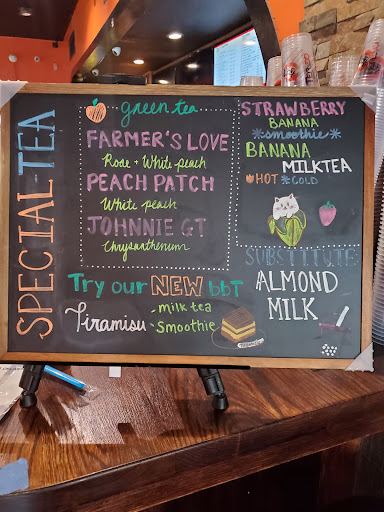 SPECIAL-TEA
green tea
FARMER'S LOVE
Rose + White peach
PEACH PATCH
White peach
JOHNNIE GT
Chrysanthemum
STRAWBERRY
BANANA
*smoothie*
BANANA
MILKTEA
HOT *COLD
SUBSTITUTE
ALMOND
MILK
Try our NEW bbT
Tiramisu - milk tea
- Smoothie